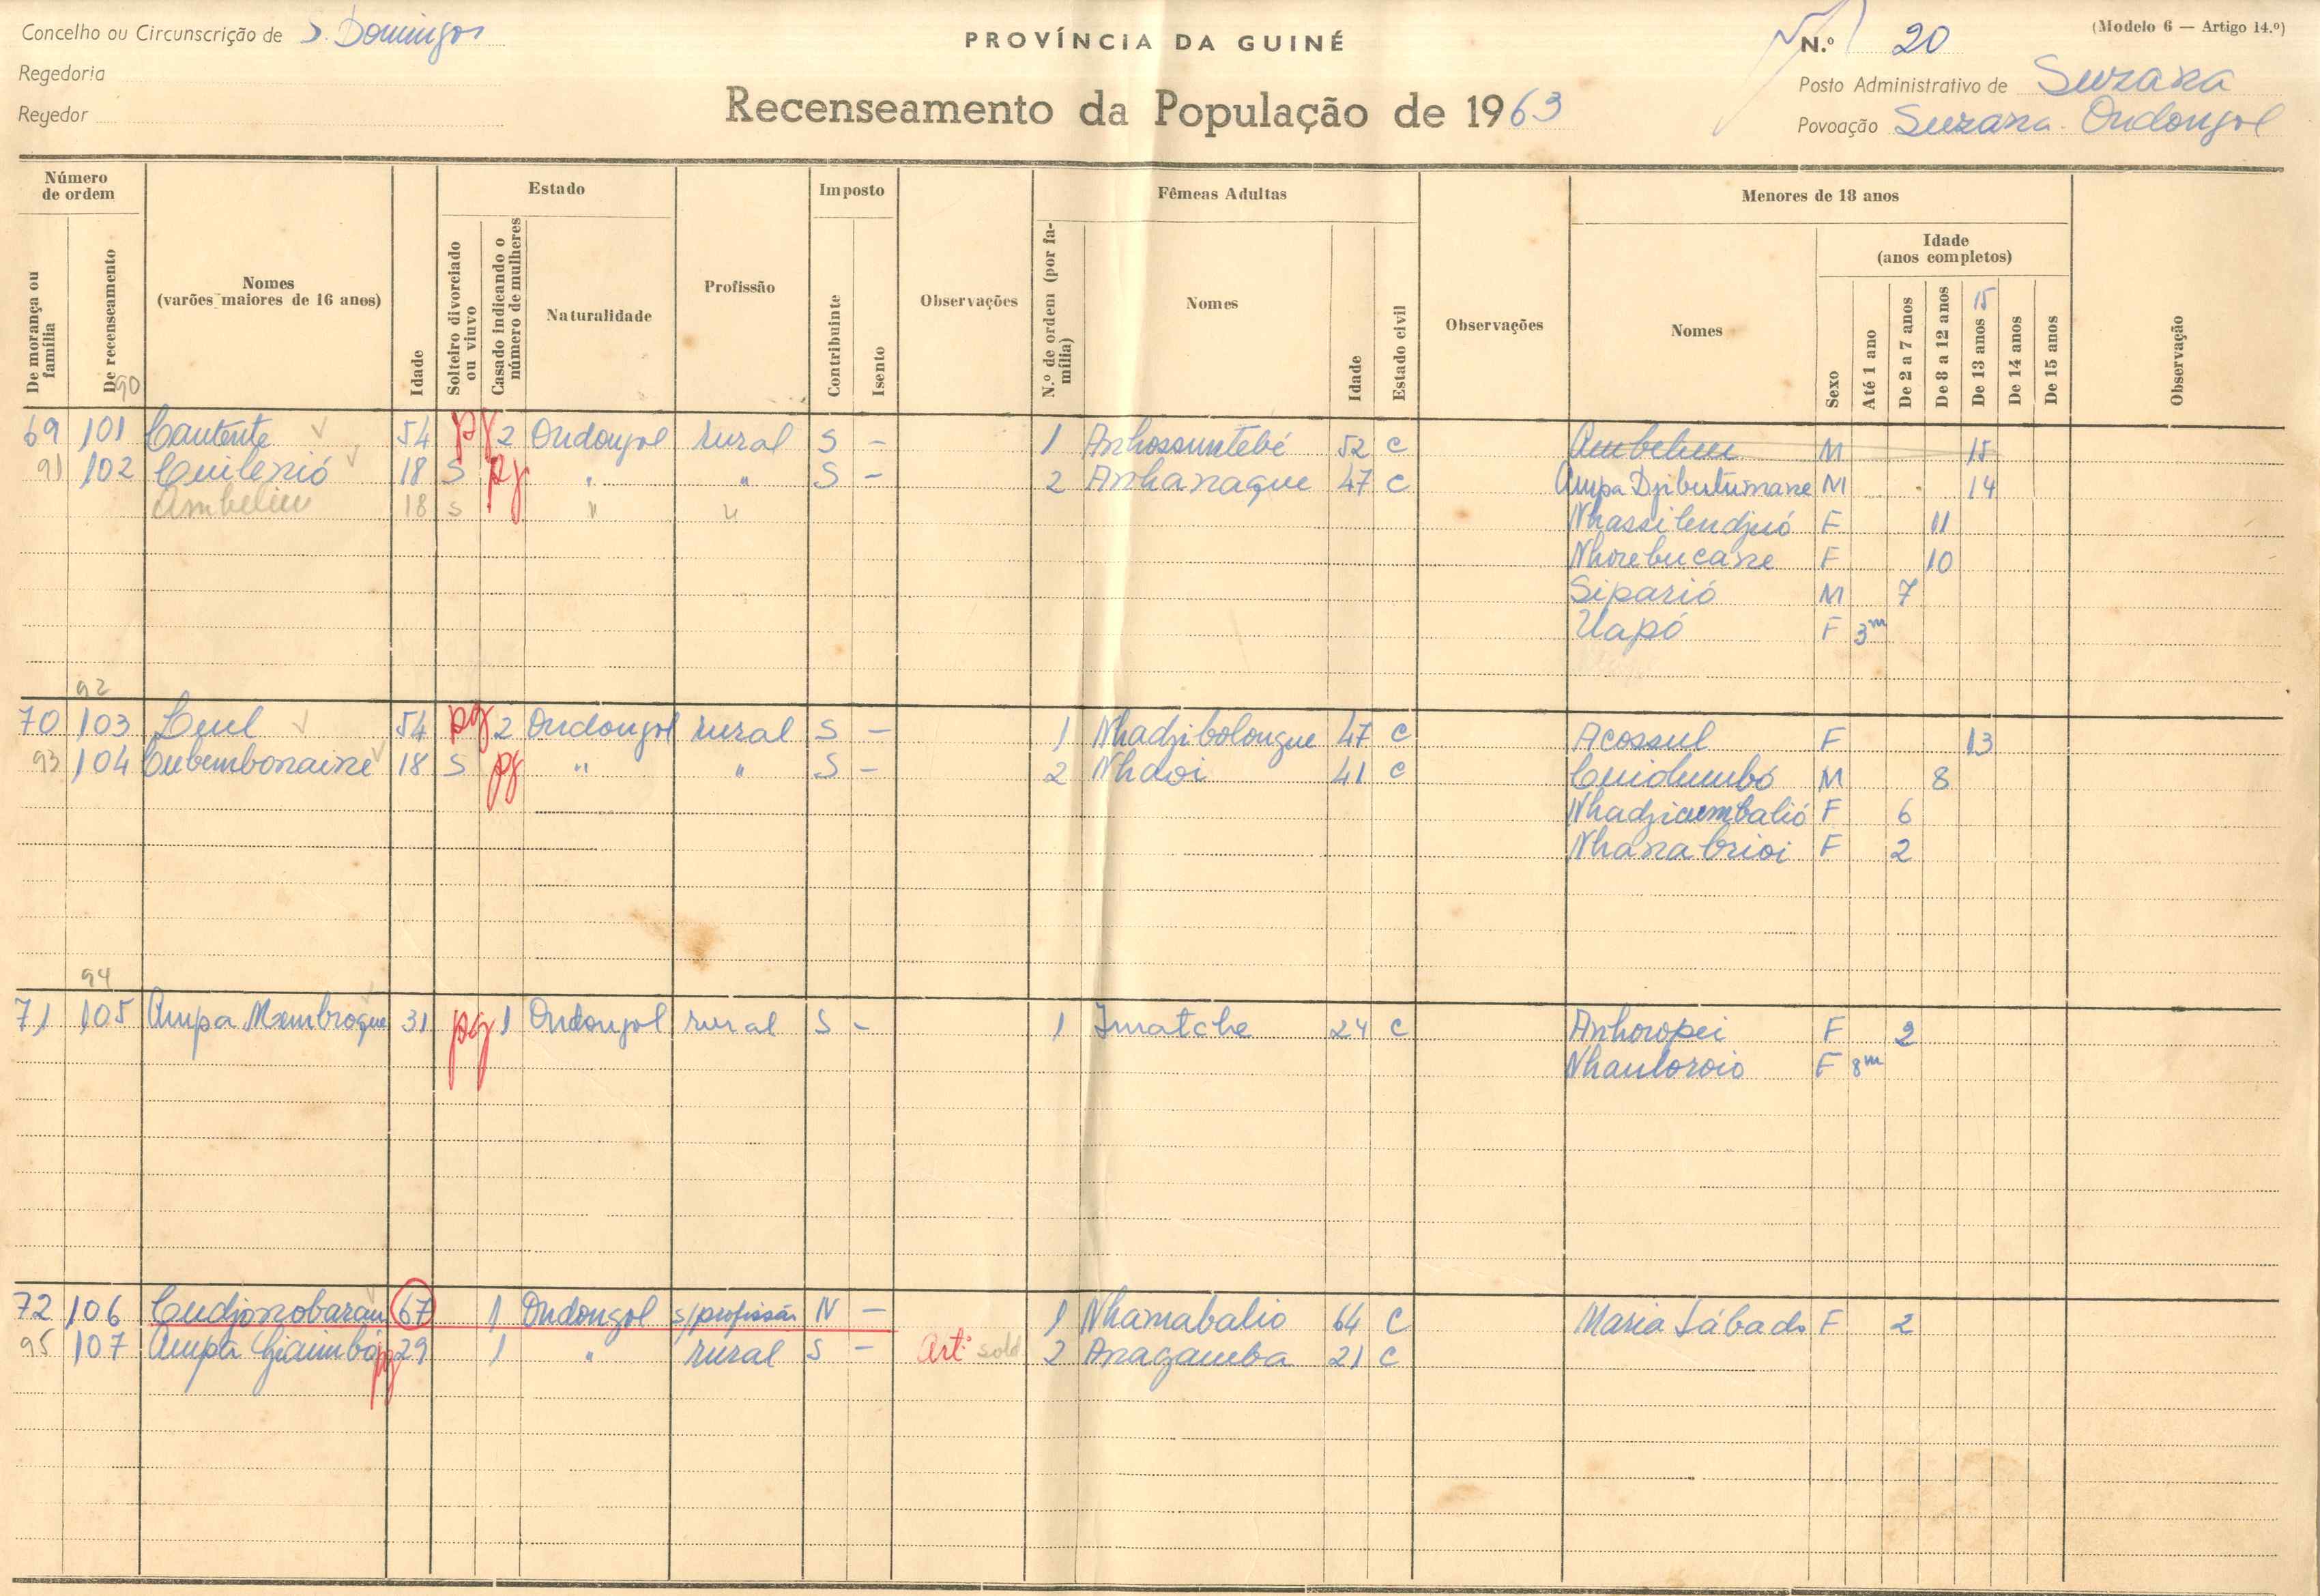 Concelho ou Circunscrição de S. Domingos
PROVÍNCIA DA GUINÉ
N.º 20
(Modelo 6 — Artigo 14.º)
Regedoria
Posto Administrativo de Suzana
Regedor
Recenseamento da População de 1963
Povoação Suzana - Ondongol
Número de ordem
Estado
Imposto
Fêmeas Adultas
Menores de 18 anos
De morança ou família
De recenseamento
Nomes (varões maiores de 16 anos)
Idade
Solteiro divorciado ou viuvo
Casado indicando o número de mulheres
Naturalidade
Profissão
Contribuinte
Isento
Observações
N.º de ordem (por família)
Nomes
Idade
Estado civil
Observações
Nomes
Sexo
Idade (anos completos)
Até 1 ano
De 2 a 7 anos
De 8 a 12 anos
De 13 anos 15
De 14 anos
De 15 anos
Observação
90
69 101 Cautente 54 pg 2 Ondongol rural S - 1 Anhossuntebé 52 C Ambelieu M 15
91 102 Cuilenió 18 S pg " " S - 2 Anhanaque 47 C Ampa Djibutumane M 14
Ambelieu 18 s " " Nhassilendjuó F 11
Nhorebucane F 10
Siparió M 7
Uapó F 3m
92
70 103 Leul 54 pg 2 Ondongol rural S - 1 Nhadjibolongue 47 C Acossul F 13
93 104 Cubembonaine 18 S pg " " S - 2 Nhdoi 41 C Cuidumbó M 8
Nhadjicumbalió F 6
Nhanabrioi F 2
94
71 105 Ampa Membroque 31 pg 1 Ondongol rural S - 1 Imatche 24 C Anhoropei F 2
Nhauloroio F 8m
72 106 Cudjonobarau 67 1 Ondongol s/profissão N - 1 Nhamabalio 64 C Maria Sábado F 2
95 107 Ampa Giaimbó pg 29 1 " rural S - Artº sold 2 Anagamba 21 C